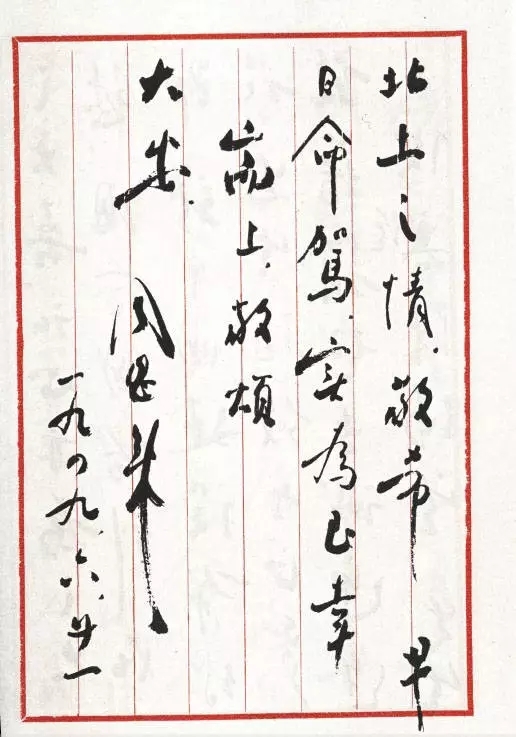 北上之情、敬希早
日命駕、实為至幸
耑上、敬颂
大安、
周恩来
一九四九、六、廿一